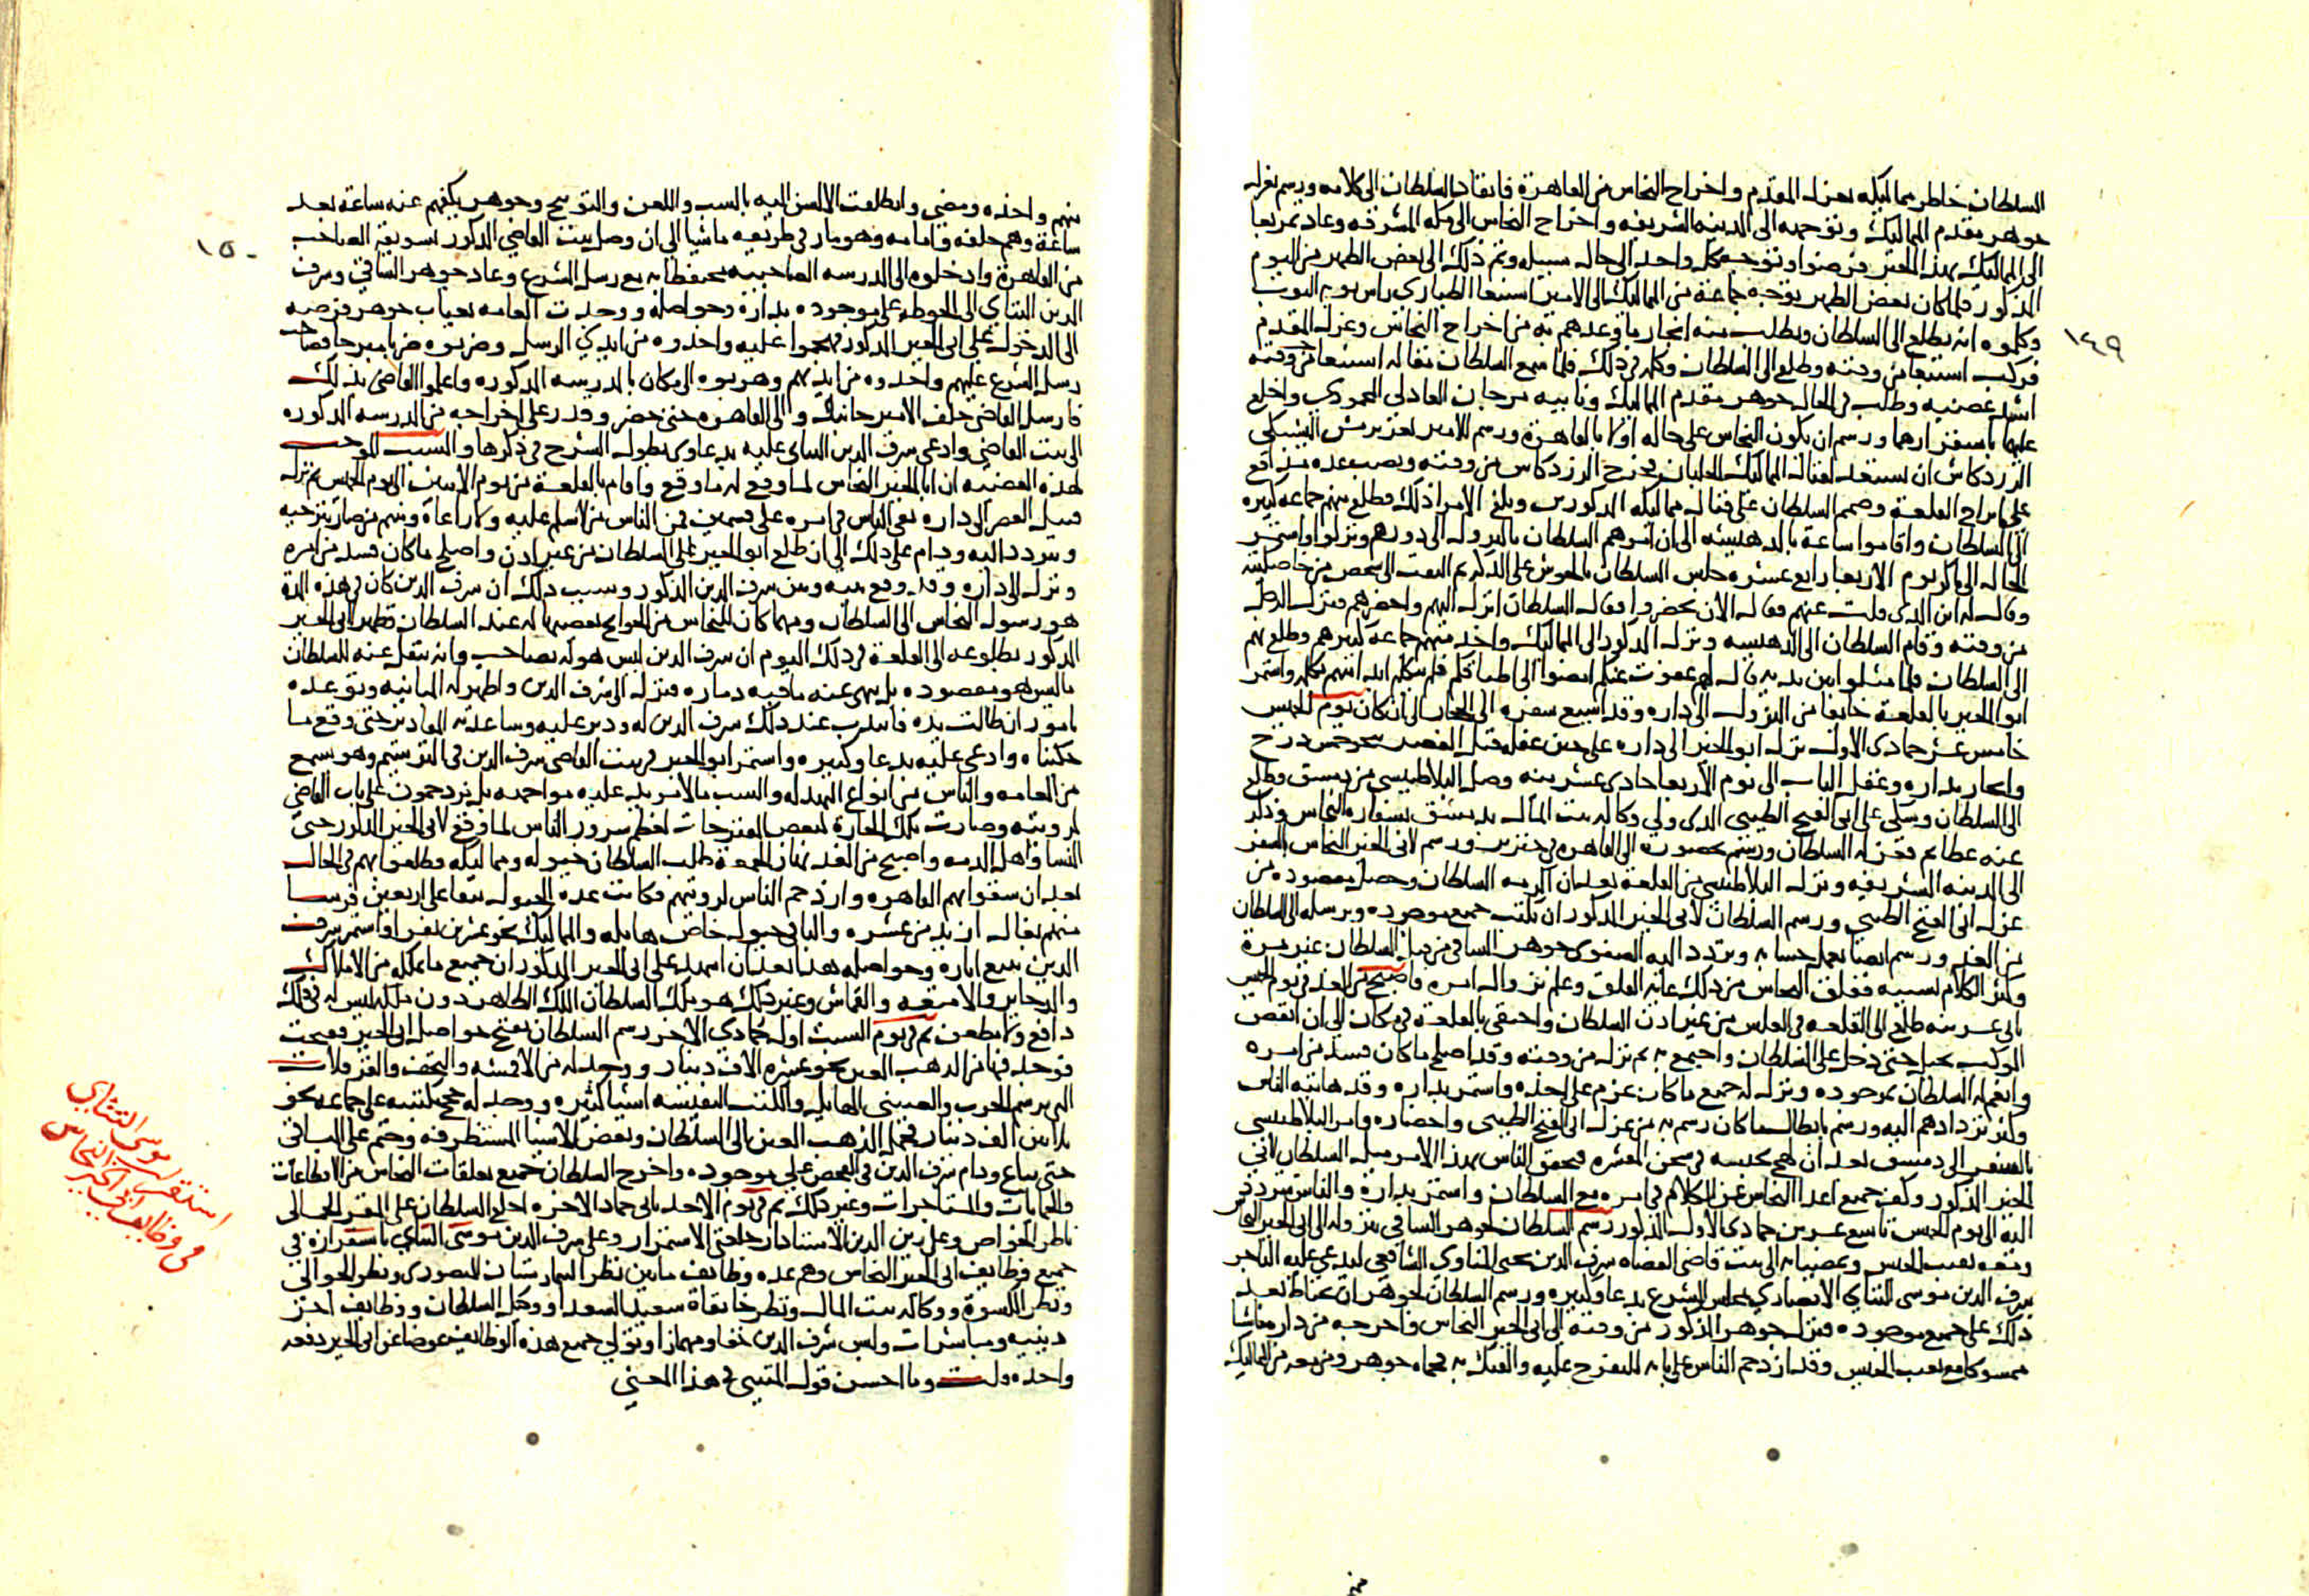 السلطان خاطر مماليكه بعزل المقدم واخراج النحاس من القاهرة فانقاد السلطان الى كلامه ورسم بعزل
جوهر مقدم المماليك وتوجهه الى المدينه الشريفه واخراج النحاس الى مكه المشرفه وعاد تمربغا
الى المماليك بهذا الخبر فرضوا وتوجه كل واحد الى حال سبيله وتم ذلك الى بعض الظهر من اليوم
المذكور فلما كان بعض الظهر توجه جماعة من المماليك الى الامير اسنبغا الطياري راس نوبه النوب
وكلموه ان يطلع الى السلطان ويطلب منه انجاز ما وعدهم به من اخراج النحاس وعزل المقدم
١٤٩
فركب اسنبغا من وقته وطلع الى السلطان وكلمه في ذلك فلما سمع السلطان مقاله اسنبغا من وقته
اشتد غضبه وطلب في الحال جوهر مقدم المماليك ونايبه مرجان العادلي المحمودي واخلع
عليهما باستقرارهما ورسم ان يكون النحاس على حاله اولا بالقاهرة ورسم للامير تغري برمش اليشبكي
الزردكاش ان يستعد لقتال المماليك الجلبان فخرج الزردكاش من وقته ونصب عده مدافع
على ابراج القلعة وصمم السلطان على قتال مماليكه المذكورين وبلغ الامرا ذلك فطلع منهم جماعه كبيره
الى السلطان واقاموا ساعة بالدهيشه الى ان امرهم السلطان بالنزول الى دورهم ونزلوا واستمر
الحال الى باكر يوم الاربعا رابع عشره جلس السلطان بالحوش على الدكه ثم التفت الى شخص من خاصكيته
وقال له اين الذي قلت عنهم فقال الان يحضروا فقال السلطان انزل اليهم واحضرهم فنزل الرجل
من وقته وقام السلطان الى الدهيشه ونزل المذكور الى المماليك واخذ منهم جماعه كبيرهم وطلع بهم
الى السلطان فلما مثلوا بين يديه قال لهم عفوت عنكم امضوا الى اطباقكم فلم يتكلم احد منهم بكلمه واستمر
ابو الخير بالقلعة خايفا من النزول الى داره وقد اشيع سفره الى الحجاز الى ان كان يوم الخميس
خامس عشر جمادى الاولى نزل ابو الخير الى داره على حين غفله قبل العصر بنحو خمس درج
وانحاز بداره وغفل الباب الى يوم الاربعا حادى عشرينه وصل البلاطنسي من دمشق وطلع
الى السلطان وشكى على ابى الفتح الطيبي الذى ولي وكاله بيت المال بدمشق بسفاره النحاس وذكر
عنه عظايم فعزله السلطان ورسم بحضوره الى القاهره في جنزير ورسم لابى الخير النحاس بالسفر
الى المدينه الشريفه ونزل البلاطنسي من القلعة بعد ان اكرمه السلطان وحصل مقصوده من
عزل ابى الفتح الطيبي ورسم السلطان لابى الخير المذكور ان يكتب جميع موجوده ويرسله الى السلطان
من الغد ورسم ايضا بعمل حسابه وتردد اليه الصفوى جوهر الساقي من قبل السلطان غير مرة
وكثر الكلام بسببه فقلق النحاس من ذلك غايه القلق وعلم بزوال امره فاصبح من الغد في يوم الخميس
ثانى عشرينه طلع الى القلعه في الغلس من غير اذن السلطان واختفى بالقلعة في مكان الى ان انفض
الموكب تحيل حتى دخل على السلطان واجتمع به ثم نزل من وقته وقد اصلح ما كان فسد من امره
وانعم له السلطان بموجوده ونزل له جميع ما كان عزم على اخذه واستمر بداره وقد هابته الناس
وكثر تردادهم اليه ورسم بابطال ما كان رسم به من عزل ابى الفتح الطيبي واحضاره وامر البلاطنسي
بالسفر الى دمشق بعد ان لهج بحبسه في سجن المقشره فتحقق الناس بهذا الامر ميل السلطان لابي
الخير المذكور وكف جميع اعداء النحاس عن الكلام في امره مع السلطان واستمر بداره والناس تتردد
اليه الى يوم الخميس تاسع عشرين جمادى الاولى المذكور رسم السلطان لجوهر الساقي بنزوله الى ابى الخير النحاس
ومعه نقيب الجيش ويمضيا به الى بيت قاضى القضاه شرف الدين يحيى المناوي الشافعي ليدعي عليه التاجر
شرف الدين موسى التتاي الانصاري بمجلس الشرع بدعاو كثيره ورسم السلطان لجوهر ان يحتاط بعد
ذلك على جميع موجوده فنزل جوهر المذكور من وقته الى ابى الخير النحاس واخرجه من داره ماشيا
ممسوكا مع نقيب الجيش وقد ازدحم الناس على بابه للتفرج عليه والفتك به فحماه جوهر ومن معه من المماليك
منهم واخذه ومضى وانطلقت الالسن اليه بالسب واللعن والتوبيخ وجوهر يكفهم عنه ساعة بعد
ساعة وهم خلفه وامامه وهو مار في طريقه ماشيا الى ان وصل بيت القاضي المذكور بسويقة الصاحب
١٥٠
من القاهرة وادخلوه الى المدرسه الصاحبيه يحتفظا به مع رسل الشرع وعاد جوهر الساقي وشرف
الدين التتاي الى الحوطه على موجوده بداره وحواصله ووجدت العامه بغياب جوهر فرصه
الى الدخول على ابى الخير المذكور فهجموا عليه واخذوه من ايدي الرسل وضربوه ضربا مبرحا فصاحت
رسل الشرع عليهم واخذوه من ايديهم وهربوه الى مكان بالمدرسه المذكوره واعلموا القاضى بذلك
فارسل القاضى خلف الامير جانبك والى القاهره حتى حضر وقدر على اخراجه من المدرسه المذكوره
الى بيت القاضي وادعى شرف الدين التتاى عليه بدعاوى يطول الشرح في ذكرها والسبب الموجب
لهذه القضيه ان ابا الخير النحاس لما وقع له ما وقع واقام بالقلعة من يوم الاثنين الى يوم الخميس نزل
قبيل العصر الى داره بقى الناس في امره على قسمين فمن الناس من لا سلم عليه ولا راعاه ومنهم من صار يترحب
ويتردد اليه ودام على ذلك الى ان طلع ابو الخير الى السلطان من غير اذن واصلح ما كان فسد من امره
ونزل الى داره وقد وقع بينه وبين شرف الدين المذكور وسبب ذلك ان شرف الدين كان في هذه المدة
هو رسول النحاس الى السلطان ومهما كان للنحاس من الحوايج يقضيها له عند السلطان فظهر لابى الخير
المذكور بطلوعه الى القلعة في ذلك اليوم ان شرف الدين ليس هو له بصاحب وانه ينقل عنه للسلطان
ما ليس هو مقصوده بل ينهى عنه ما فيه دماره فنزل الى شرف الدين واظهر له المباينه وتوعده
بامور ان طالت يده فانتدب عند ذلك شرف الدين له ودبر عليه وساعدته المقادير حتى وقع ما
حكيناه وادعى عليه بدعاو كثيره واستمر ابو الخير في بيت القاضى شرف الدين في الترسيم وهو يسمع
من العامه والناس من انواع البهدله والسب ما لا مزيد عليه مواجهه بل يزدحمون على باب القاضي
لرويته وصارت تلك الحارة كبعض المفترجات لعظم سرور الناس لما وقع لابى الخير المذكور حتى
النسا واهل الذمه واصبح من الغد نهار الجمعة طلب السلطان خيوله ومماليكه فطلعوا بهم في الحال
بعد ان شقوا بهم القاهره وازدحم الناس لرويتهم فكانت عده الخيول نيفا على اربعين فرسا
منهم بغال ازيد من عشره والباقى خيول خاص هايله والمماليك نحو عشرين نفرا واستمر شرف
الدين يتتبع اثاره وحواصله هذا بعد ان اشهد على ابى الخير المذكور ان جميع ما يملكه من الاملاك
والذخاير والامتعه والقماش وغير ذلك هو ملك السلطان الملك الظاهر دون ملكه ليس له في ذلك
دافع ولا مطعن ثم في يوم السبت اول جمادي الاخر رسم السلطان بفتح حواصل ابى الخير ففتحت
فوجد فيها من الذهب العين نحو عشرة الاف دينار ووجد له من الاقمشه والتحف والقرقلات
التى برسم الحرب والصيني الهايل والكتب النفيسه اشيا كثيره ووجد له حجج مكتتبه على جماعه بنحو
ثلاثين الف دينار فحمل الذهب العين الى السلطان وبعض الاشيا المستظرفه وختم على الباقى
حتى يباع ودام شرف الدين في الفحص على موجوده واخرج السلطان جميع تعلقات النحاس من الاقطاعات
والحمايات والمستاجرات وغير ذلك ثم في يوم الاحد ثانى جماد الاخره اخلع السلطان على المقر الجمالى
ناظر الخواص وعلى زين الدين الاستادار خلعتى الاستمرار وعلى شرف الدين موسى التتاي باستقراره في
جميع وظايف ابى الخير النحاس وهم عده وظايف ما بين نظر البيمارستان المنصورى ونظر الجوالي
ونظر الكسوة ووكاله بيت المال ونظر خانقاة سعيد السعدا ووكيل السلطان ووظايف اخر
دينيه ومباشرات ولبس شرف الدين خفا ومهمازا وتولي جميع هذه الوظايف عوضا عن ابى الخير دفعه
واحده قلت وما احسن قول المتنبي في هذا المعنى
استقر موسى التتاي
في وظايف ابى الخير النحاس